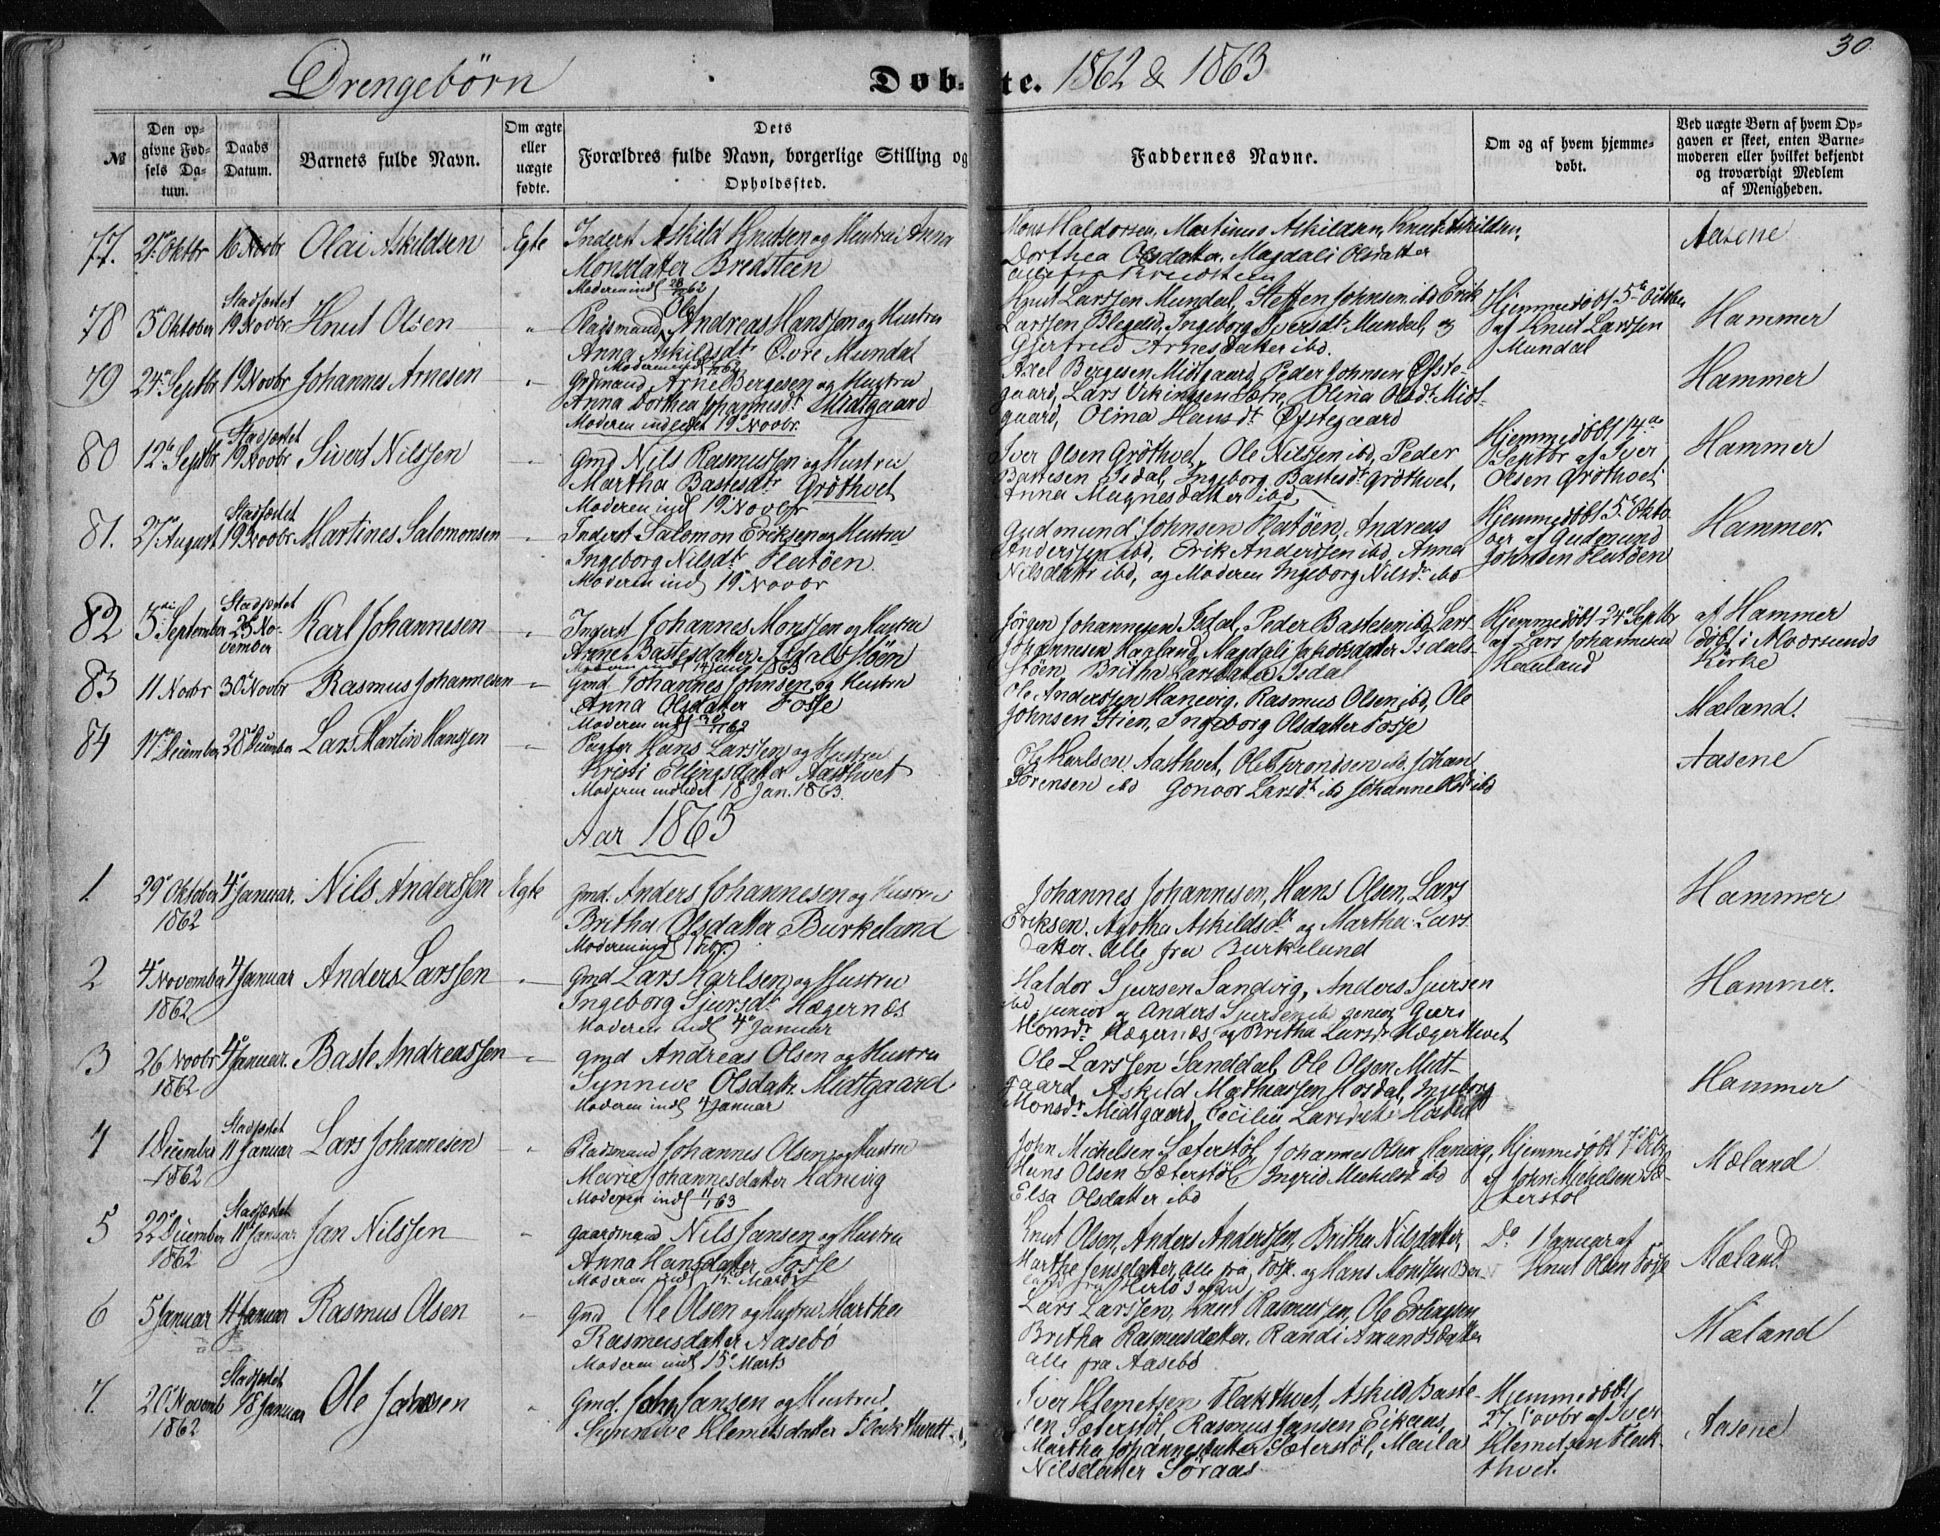 Drengebørn
Døbte. 1862 & 1863
30
№
Den op-
givne Fød-
sels Da-
tum.
Daabs
Datum.
Barnets fulde Navn.
Om ægte
eller
uægte
fødte.
Dets
Forældres fulde Navn, borgerlige Stilling og
Opholdssted.
Faddernes Navne.
Om og af hvem hjemme-
døbt.
Ved uægte Børn af hvem Op-
gaven er skeet, enten Barne-
moderen eller hvilket bekjendt
og troværdigt Medlem
af Menigheden.
77. 21de Oktbr 16 Novbr Olai Askildsen Ægte
Inderst Askild Knutsen og Hustru Anna
Monsdatter Bredsteen
Mons Haldorsen, Martinus Askildsen, Knut Askildsen,
Dorthea Olsdatter, Magdali Olsdatter
alle fra Bredsteen
Aasene
78 5 Oktober Stadfæstet
19 Novbr Knut Olsen "
Moderen indl 28/62
Pladsmand Ole Andreas Hanssen og Hustru
Anna Askildsdtr Øvre Mundal
Knut Larssen Mundal, Steffen Johnsen ibd Erik
Larssen Blegelid, Ingeborg Iversdtr Mundal, og
Gjertrud Arnesdatter ibd.
Hjemmedøbt 5te October
af Knut Larssen
Mundal
Hammer
79 24de Septbr 19 Novbr Johannes Arnesen "
Grdmand Arne Bergesen og Hustru
Anna Dorthea Johannesdtr Midtgaard
Moderen indledet 19 Novbr.
Axel Bergesen Midtgaard, Peder Johnsen Øfste-
gaard, Lars Vikingsen Sætre, Olina Olsdtr Midt-
gaard, Olina Hansdtr Øfstegaard
Hammer
80 12te Septbr Stadfæstet
19 Novbr Sivert Nilssen "
Gmd Nils Rasmussen og Hustru
Martha Bastesdtr Grøthvet
Moderen indl 19 Novbr
Iver Olsen Grøthvet, Ole Nilssen ibd, Peder
Bastesen Isdal, Ingeborg Bastesdtr Grøthvet,
Anna Magnesdatter ibd.
Hjemmedøbt 14de
Septbr af Iver
Olsen Grøthvet
Hammer
81. 27de August Stadfæstet
19 Novbr Martines Salomonsen "
Inderst Salomon Eriksen og Hustru
Ingeborg Nilsdtr Flatøen.
Moderen indl 19 Novbr
Gudmund Johnsen Flatøen, Andreas
Anderssen ibd, Erik Anderssen ibd, Anna
Nilsdattr ibd, og Moderen Ingeborg Nilsdtr ibd
Hjemmedøbt 5te Okto-
ber af Gudmund
Johnsen Flatøen
Hammer.
82 5te September Stadfæstet
23 No-
vember Karl Johannesen "
Inderst Johannes Monssen og Hustru
Anne Bastesdatter Isdalsstøen
Jørgen Johannesen Isdal, Peder Bastesen ibd Lars
Johannesen Hauland, Magdale Jacobsdatter Isdals-
støen, Britha Larsdatter Isdal
Hjemmedøbt 24de Septbr
af Lars Johannesen
Hauland
af Hammer
døbt i Alversunds
Kirke
83 11 Novbr 30 Novbr Rasmus Johannesen "
Gmd Johannes Johnsen og Hustru
Anna Olsdatter Fosse
Ole Anderssen Hanevig, Rasmus Olsen ibd, Ole
Johnsen Stien, Ingeborg Olsdatter Fosse
Mæland.
84 17 December 28 December Lars Martin Hanssen "
Pagtgr Hans Larssen og Hustru
Kristi Ellingsdatter Aasthvet
Moderen indledet 18 Jan. 1863.
Ole Karlsen Aasthvet, Ole Trondsen ibd, Johan
Sørensen ibd Gonvor Larsdtr ibd Johanne Olsdtr ibd
Aasene
Aar 1863
1. 29de Oktober
1862 4de Januar. Nils Anderssen Ægte
Gmd. Anders Johannesen og Hustru
Britha Olsdatter Burkeland
Johannes Johannesen, Hans Olsen, Lars
Eriksen, Agotha Askildsdtr og Martha Lars-
datter. Alle fra Burkeland
Hammer
2 4de November
1862 4 Januar Anders Larssen "
Gmd Lars Karlsen og Hustru
Ingeborg Sjursdtr Hægernæs
Moderen indl 4de Januar
Haldor Sjursen Sandvig, Anders Sjursen
ibd junior og Anders Sjursen ibd senior Guri
Monsdr Hægernæs og Britha Larsdtr Hægerthvet
Hammer.
3 26 Novbr
1862 4de Januar. Baste Andreassen "
Gmd Andreas Olsen og Hustru
Synneve Olsdattr Midtgaard
Moderen indl 4 Januar
Ole Larssen Sanddal, Ole Olsen Midt-
gaard, Askild Mathiassen Hosdal, Ingeborg
Monsdr Midtgaard, Cecilia Larsdatt Hosdal
Hammer
4 1 December
1862 Stadfæstet
11 Januar Lars Johannesen "
Pladsmand Johannes Olsen og Hustru
Marie Johannesdatter Hanevig
Moderen indl 11/63
John Michelsen Sæterstøl, Johannes Olsen Hanevig,
Hans Olsen Sæterstøl, Ingrid Michelsd ibd
Elsa Olsdatter ibd
Hjemmedøbt 7de Decbr
af John Michelsen Sæ-
terstøl
Mæland
5 22de December
1862 Stadfæstet
11te Januar Jan Nilssen "
Gaardmand Nils Jansen og Hustru
Anna Hansdatter Fosse
Moderen indl 15 Marts
Knut Olsen, Anders Anderssen, Britha Nilsdatter,
Marthe Jensdatter, alle fra Fosse, og Hans Monssen
Do 1 Januar af
Knut Olsen Fosse
Mæland.
6 5 Januar 11 Januar Rasmus Olsen "
Gmd Ole Olsen og Hustru Martha
Rasmusdatter Aasebø
Moderen indl 15de Marts
Lars Larssen, Knut Rasmussen, Ole Erlingsen,
Britha Rasmusdatter, Randi Amundsdatter
alle fra Aasebø
Mæland
7. 20de Novemb
1862 Stadfæstet
18 Januar Ole Johnsen "
Gmd. John Jansen og Hustru
Synneve Klemetsdatter Flekthvet
Iver Klemetsen Flekthvet, Askild Baste-
sen Sæterstøl, Rasmus Jansen Eikaas,
Martha Johannesdatter Sæterstøl, Maila
Nilsdatter Søraas
Hjemmedøbt
27. Novbr af Iver
Klemetsen Flek-
thvet.
Aasene